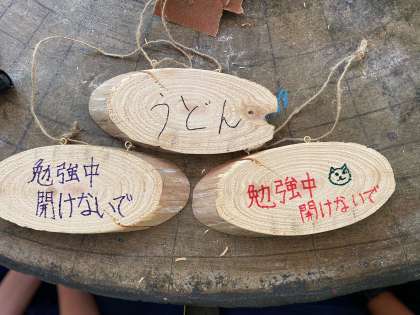 うどん
勉強中
開けないで
勉強中
開けないで